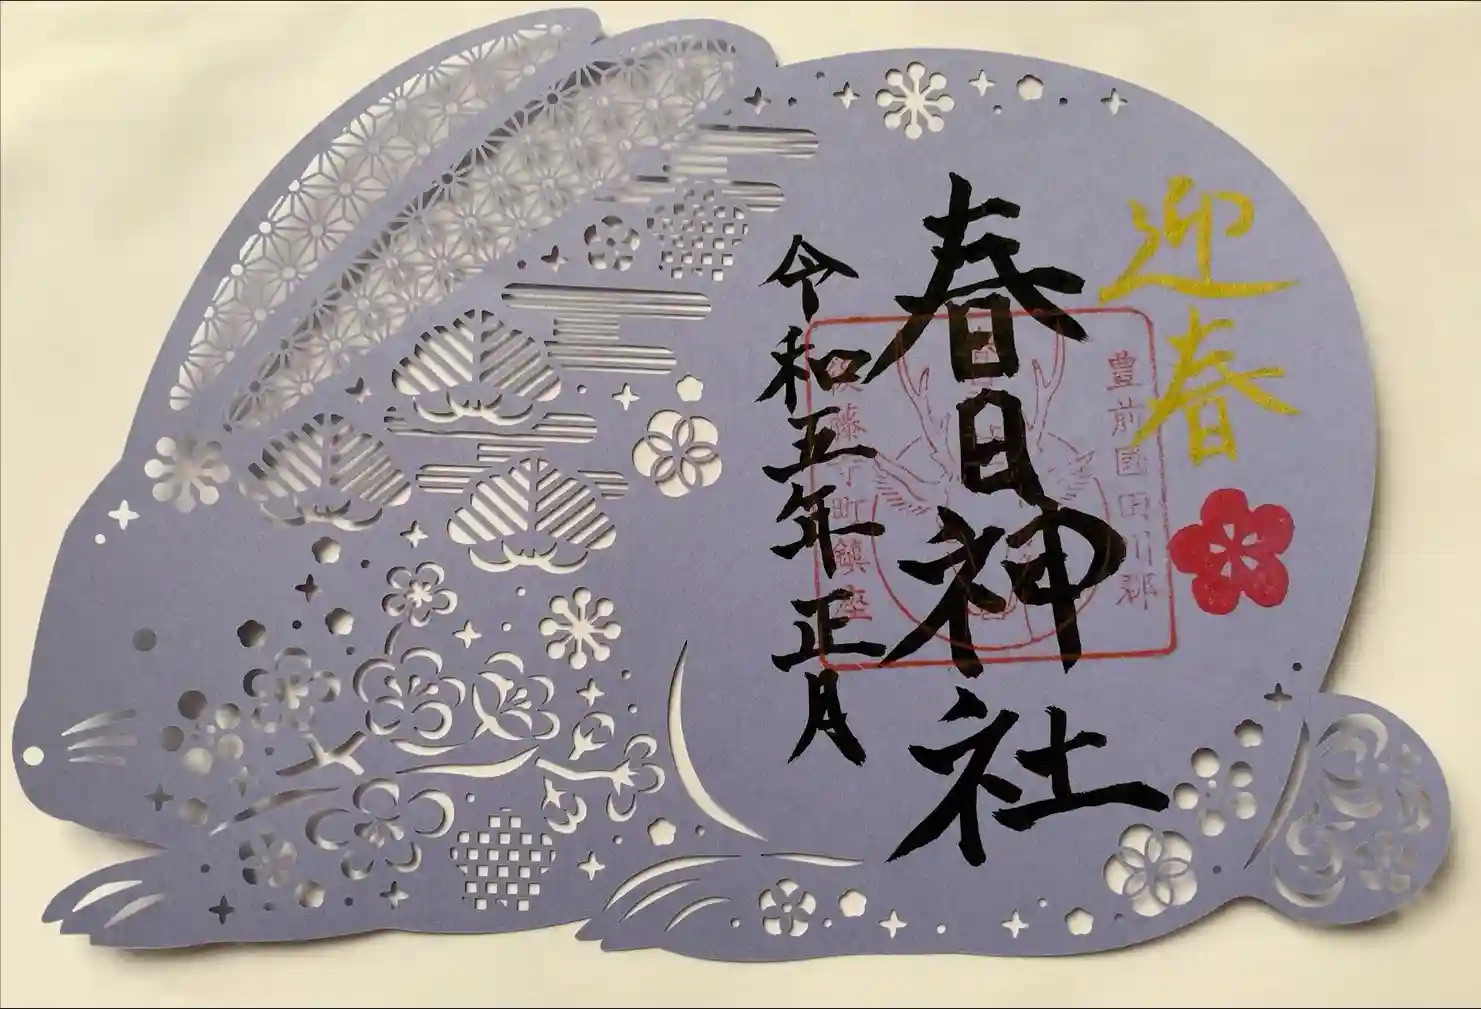 迎春
豊前國田川郡
春日神社
後藤寺町鎮座
令和五年正月